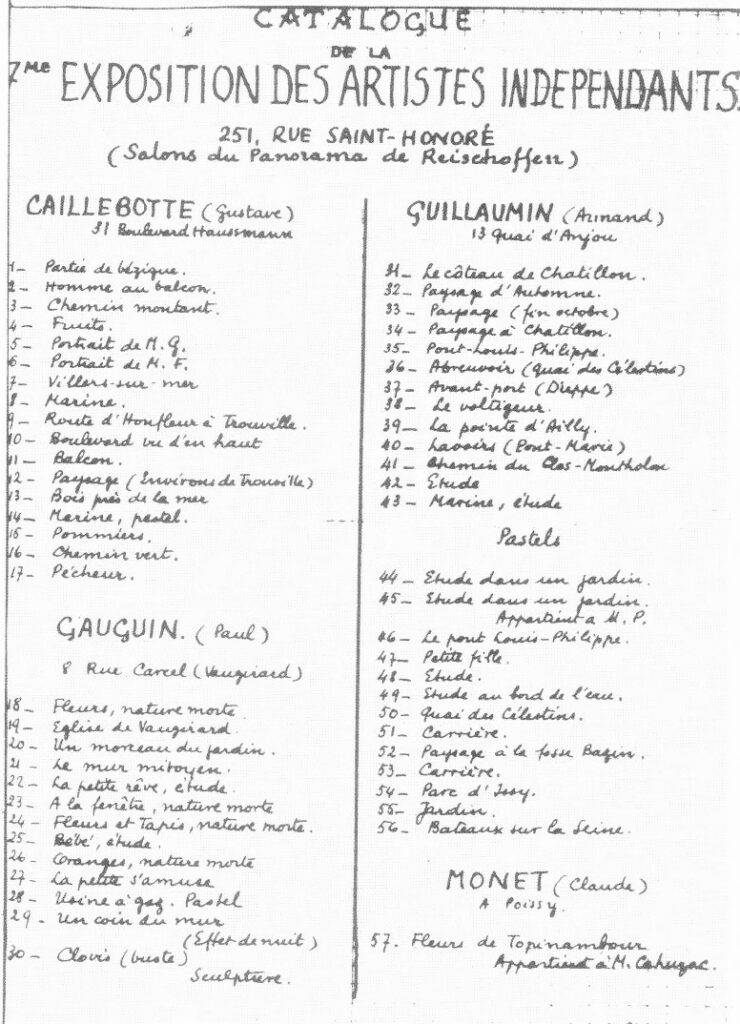 CATALOGUE
DE LA
7ME EXPOSITION DES ARTISTES INDEPENDANTS.
251, RUE SAINT-HONORÉ
(Salons du Panorama de Reischoffen)
CAILLEBOTTE (Gustave)
31 Boulevard Haussmann
1- Partie de bézique.
2- Homme au balcon.
3- Chemin montant.
4- Fruits.
5- Portrait de M. G.
6- Portrait de M. F.
7- Villers-sur-mer
8- Marine.
9- Route d'Honfleur à Trouville.
10- Boulevard vu d'en haut
11- Balcon.
12- Paysage (Environs de Trouville)
13- Bois près de la mer
14- Marine, pastel.
15- Pommiers.
16- Chemin vert.
17- Pécheur.
GAUGUIN. (Paul)
8 Rue Carcel (Vaugirard)
18- Fleurs, nature morte
19- Eglise de Vaugirard.
20- Un morceau du jardin.
21- Le mur mitoyen.
22- La petite rêve, étude.
23- A la fenêtre, nature morte
24- Fleurs et Tapis, nature morte.
25- Bébé, étude.
26- Oranges, nature morte
27- La petite s'amuse
28- Usine à gaz. Pastel
29- Un coin du mur
(Effet de nuit)
30- Clovis (buste)
Sculpture.
GUILLAUMIN (Armand)
13 Quai d'Anjou
31- Le côteau de Chatillon.
32- Paysage d'Automne.
33- Paysage (fin octobre)
34- Paysage à Chatillon.
35- Pont-Louis-Philippe.
36- Abreuvoir (Quai des Célestins)
37- Avant-port (Dieppe)
38- Le voltigeur.
39- La pointe d'Ailly.
40- Lavoirs (Pont-Marie)
41- Chemin du Clos-Montholon
42- Etude
43- Marine, étude
Pastels
44- Etude dans un jardin.
45- Etude dans un jardin.
Appartient à M. P.
46- Le pont Louis-Philippe.
47- Petite fille.
48- Etude.
49- Etude au bord de l'eau.
50- Quai des Célestins.
51- Carrière.
52- Paysage à la fosse Bazin.
53- Carrière.
54- Parc d'Issy.
55- Jardin.
56- Bateaux sur la Seine.
MONET (Claude)
A Poissy.
57. Fleurs de Topinambour
Appartient à M. Cahuzac.